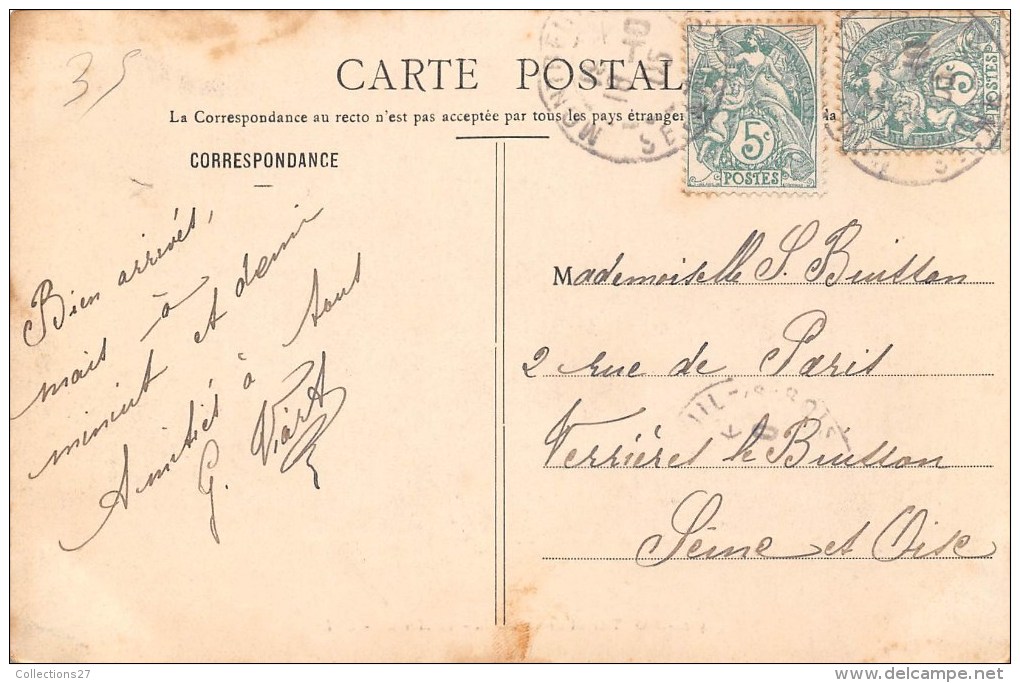 35
CARTE POSTAL
La Correspondance au recto n'est pas acceptée par tous les pays étranger
la
CORRESPONDANCE
5c
POSTES
5c
POSTES
Bien arrivés,
mais à
minuit et demi
Amitiés à tous
G. Viart
Mademoiselle S. Buisson
2 rue de Paris
Verrières le Buisson
Seine et Oise
Collections27
www.delcampe.net